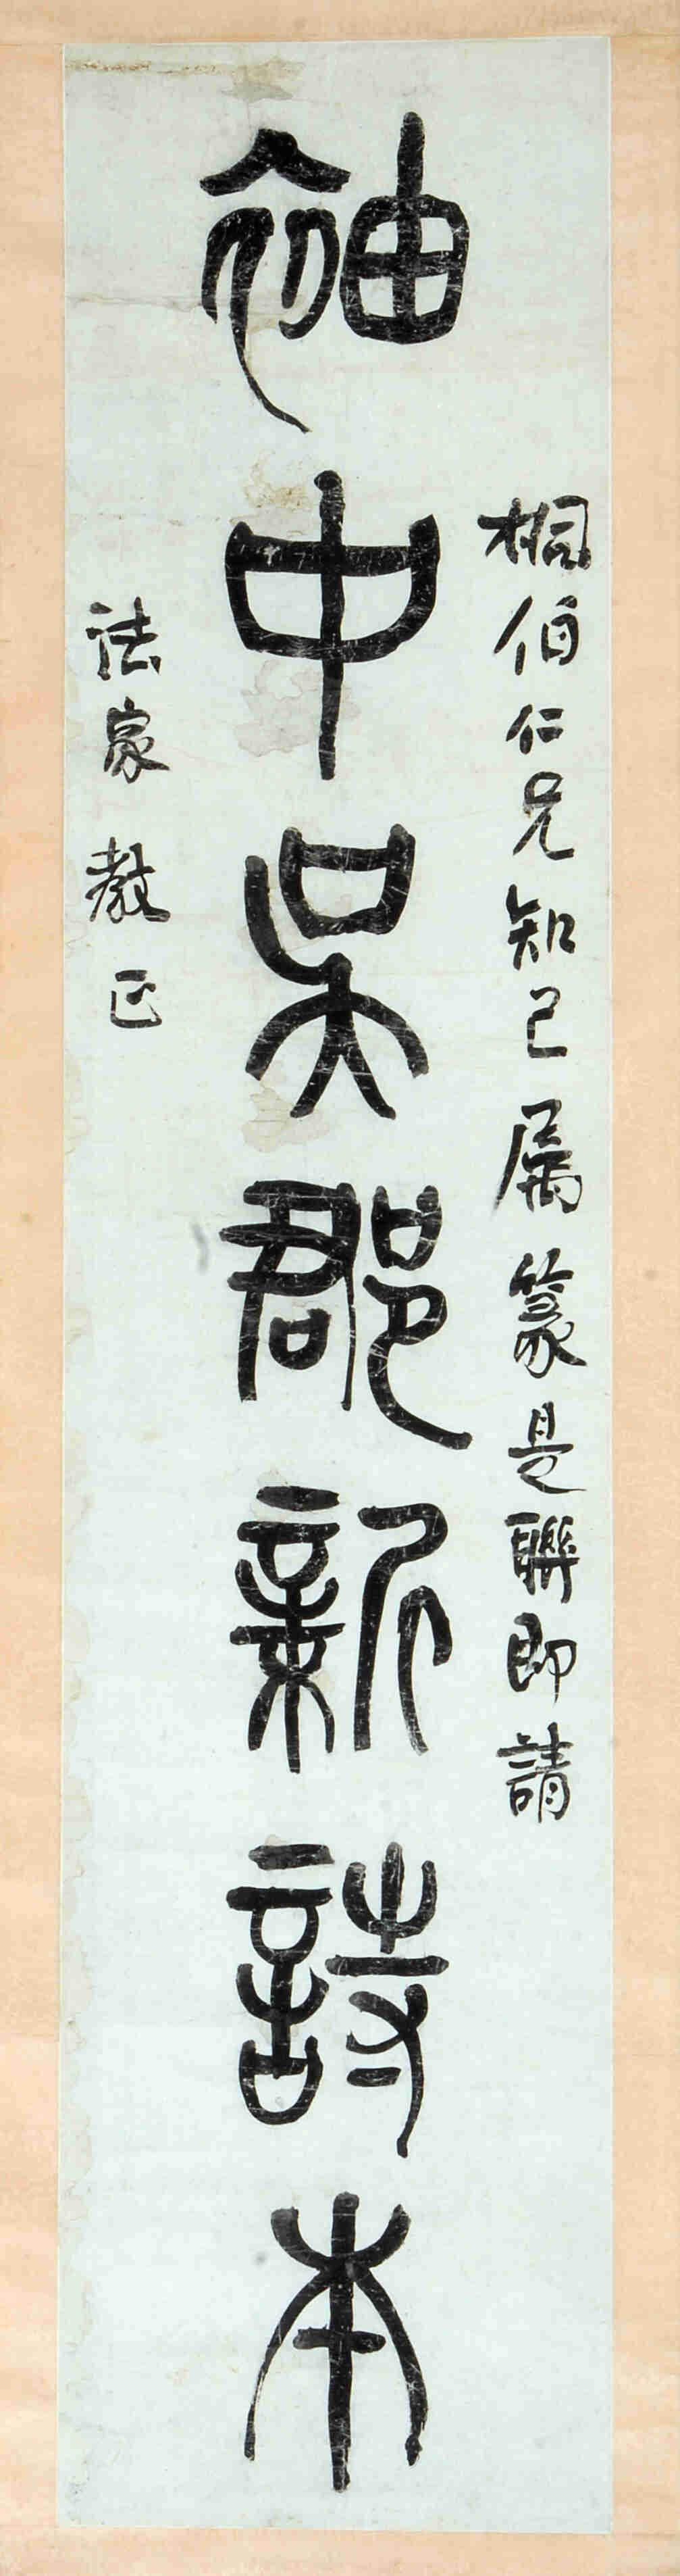 桐伯仁兄知己属篆是聯即請
袖中吳郡新詩本
法家教正